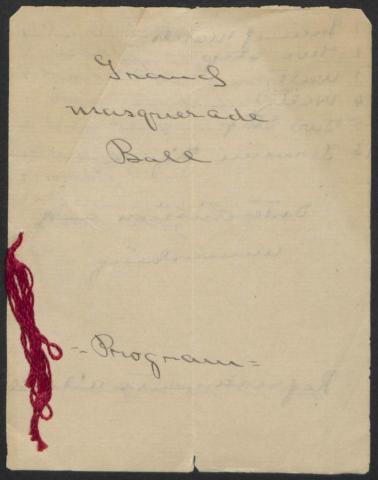 Grand
masquerade
Ball
= Program =